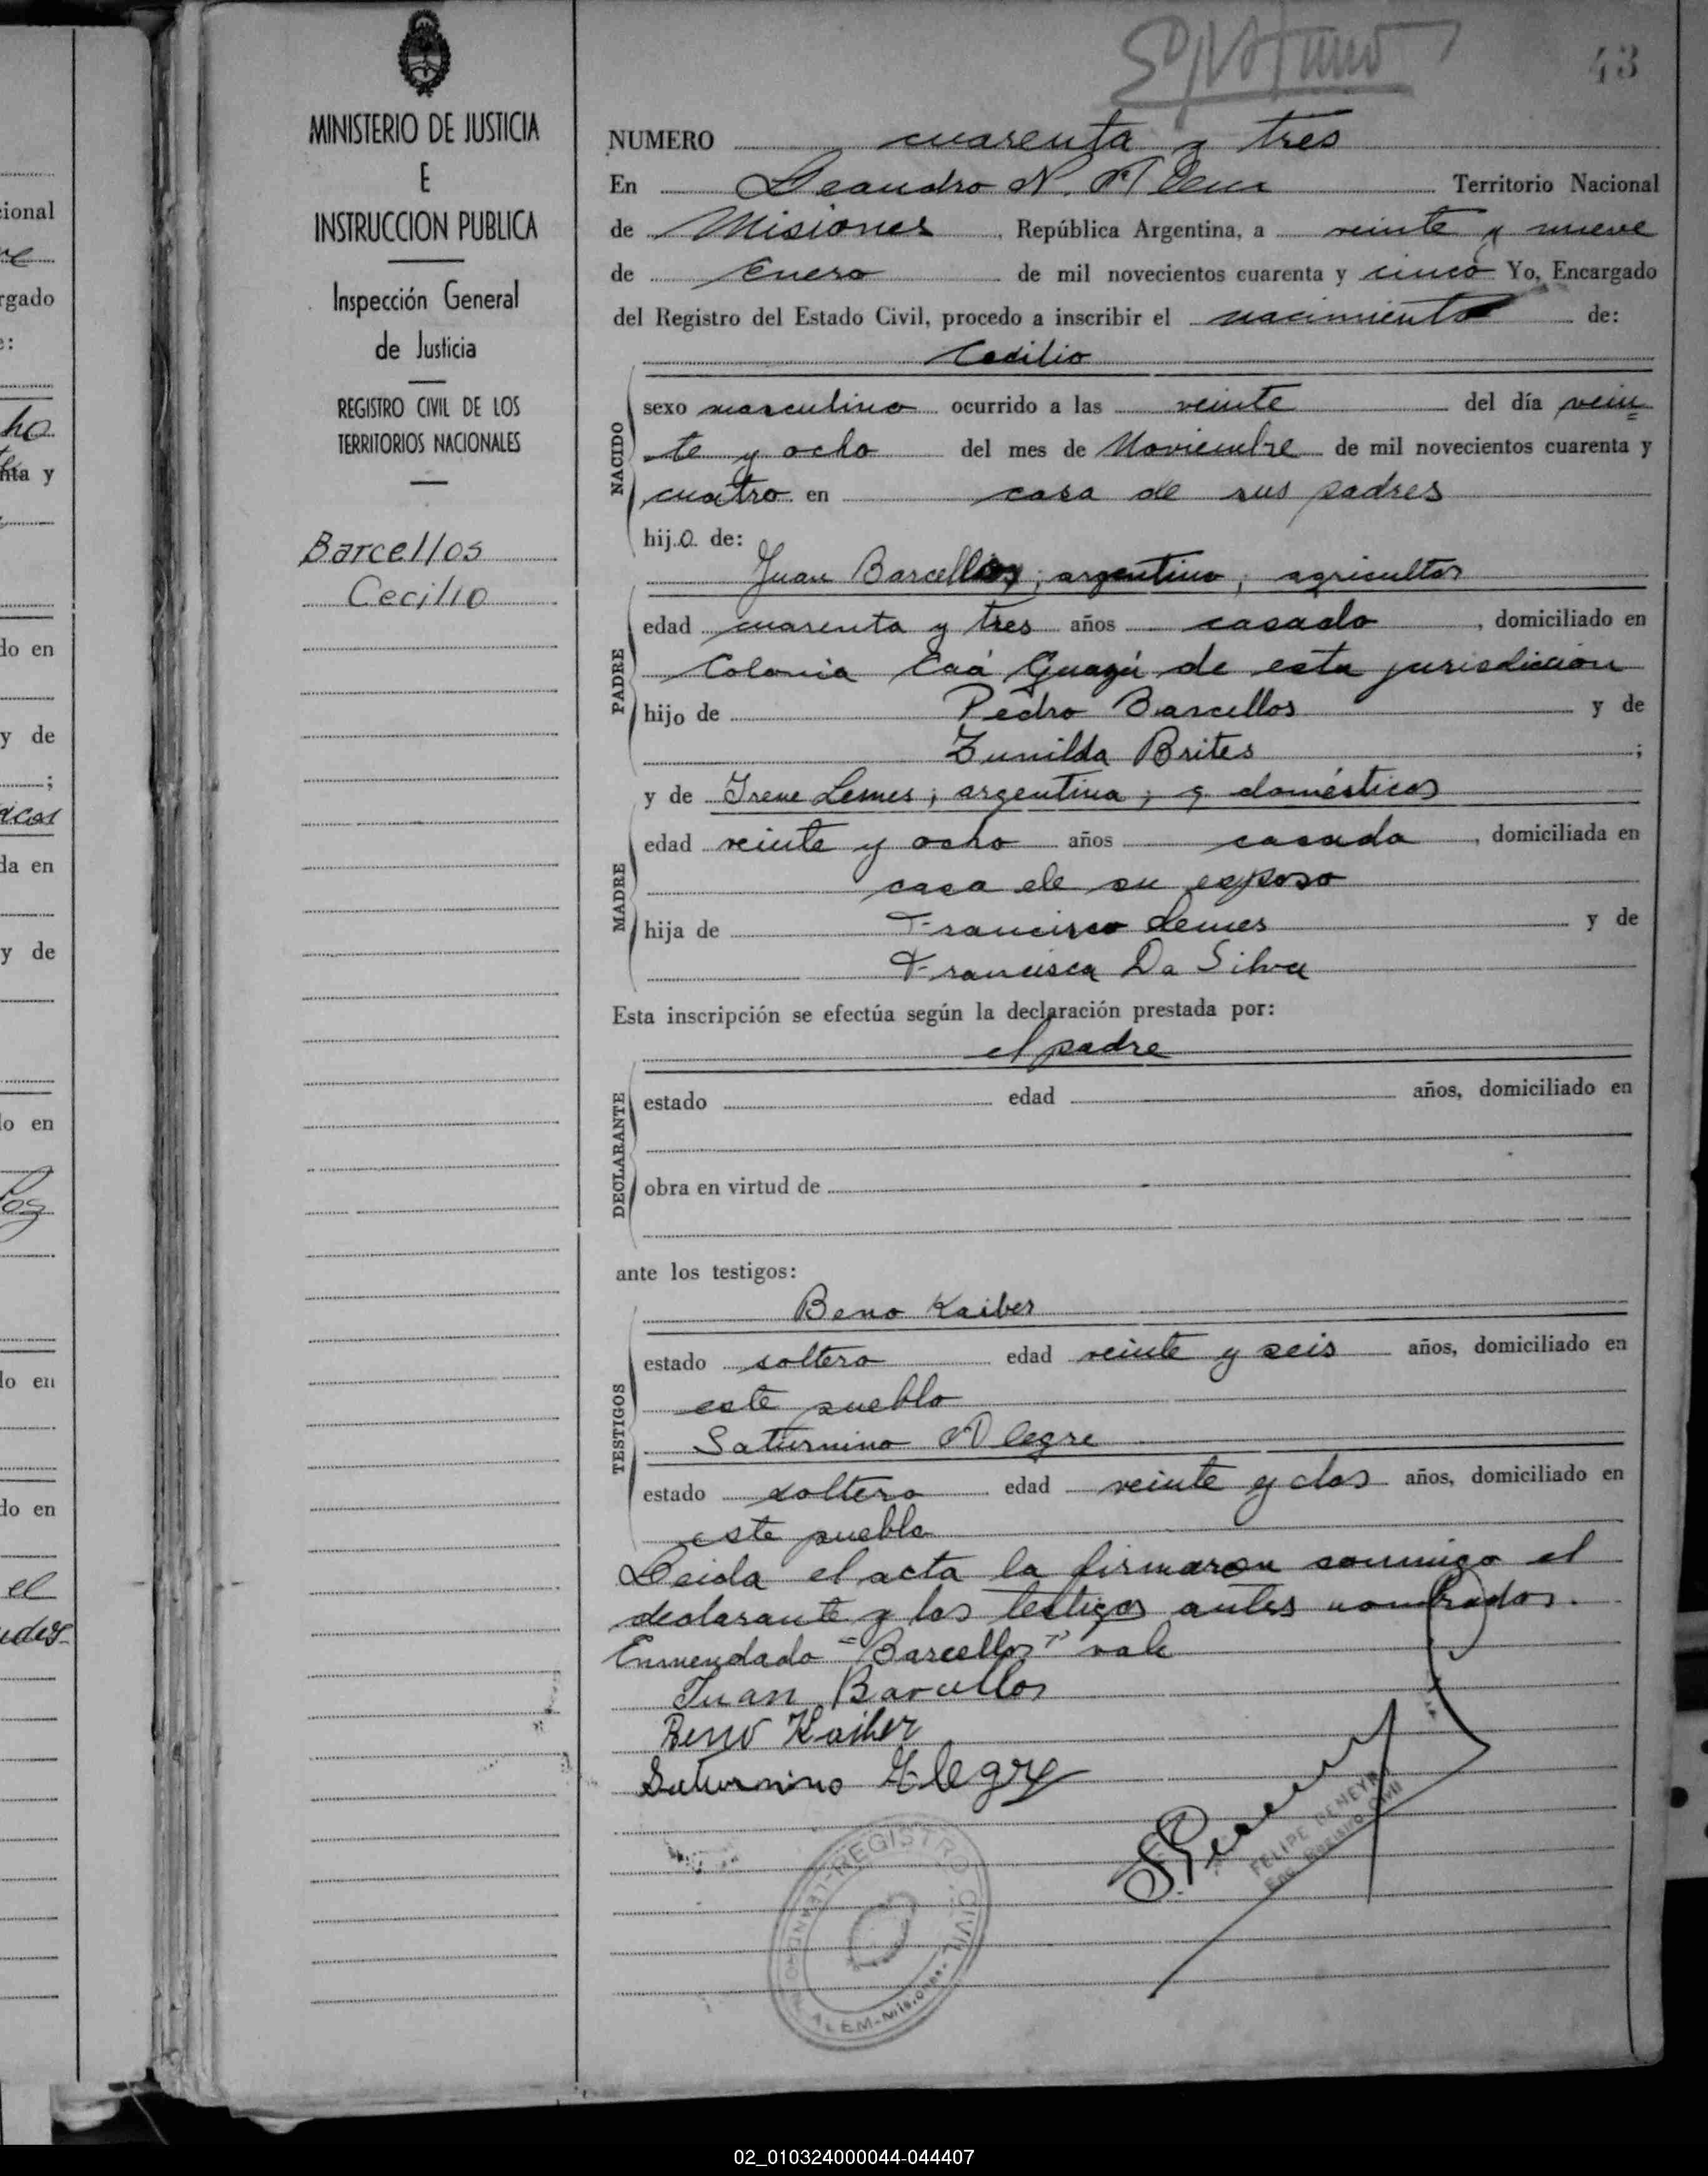 43
MINISTERIO DE JUSTICIA
E
INSTRUCCION PUBLICA
Inspección General
de Justicia
REGISTRO CIVIL DE LOS
TERRITORIOS NACIONALES
Barcellos
Cecilio
NUMERO cuarenta y tres
En Leandro N. Alem Territorio Nacional
de Misiones, República Argentina, a veinte y nueve
de Enero de mil novecientos cuarenta y cinco Yo, Encargado
del Registro del Estado Civil, procedo a inscribir el nacimiento de:
Cecilio
NACIDO
sexo masculino ocurrido a las veinte del día vein=
te y ocho del mes de Noviembre de mil novecientos cuarenta y
cuatro en casa de sus padres
hijo de:
Juan Barcellos; argentino; agricultor
PADRE
edad cuarenta y tres años casado, domiciliado en
Colonia Caá Guazú de esta jurisdiccion
hijo de Pedro Barcellos y de
Zunilda Brites;
y de Irene Lemes; argentina; q domésticos
MADRE
edad veinte y ocho años casada, domiciliada en
casa de su esposo
hija de Francisco Lemes y de
Francisca Da Silva
Esta inscripción se efectúa según la declaración prestada por:
el padre
DECLARANTE
estado edad años, domiciliado en
obra en virtud de
ante los testigos:
Beno Kaiber
TESTIGOS
estado soltero edad veinte y seis años, domiciliado en
este pueblo
Saturnino Alegre
estado soltero edad veinte y dos años, domiciliado en
este pueblo
Leida el acta la firmaron conmigo el
declarante y los testigos antes nombrados.
Enmendado "Barcellos" vale
Juan Barcellos
Beno Kaiber
Saturnino Alegre
REGISTRO CIVIL
LEANDRO N. ALEM-Misiones-
FELIPE DENEYR
Enc. Registro Civil
ional
rgado
e:
ho
nta y
do en
y de
;
da en
y de
lo en
lo en
do en
el
02_010324000044-044407